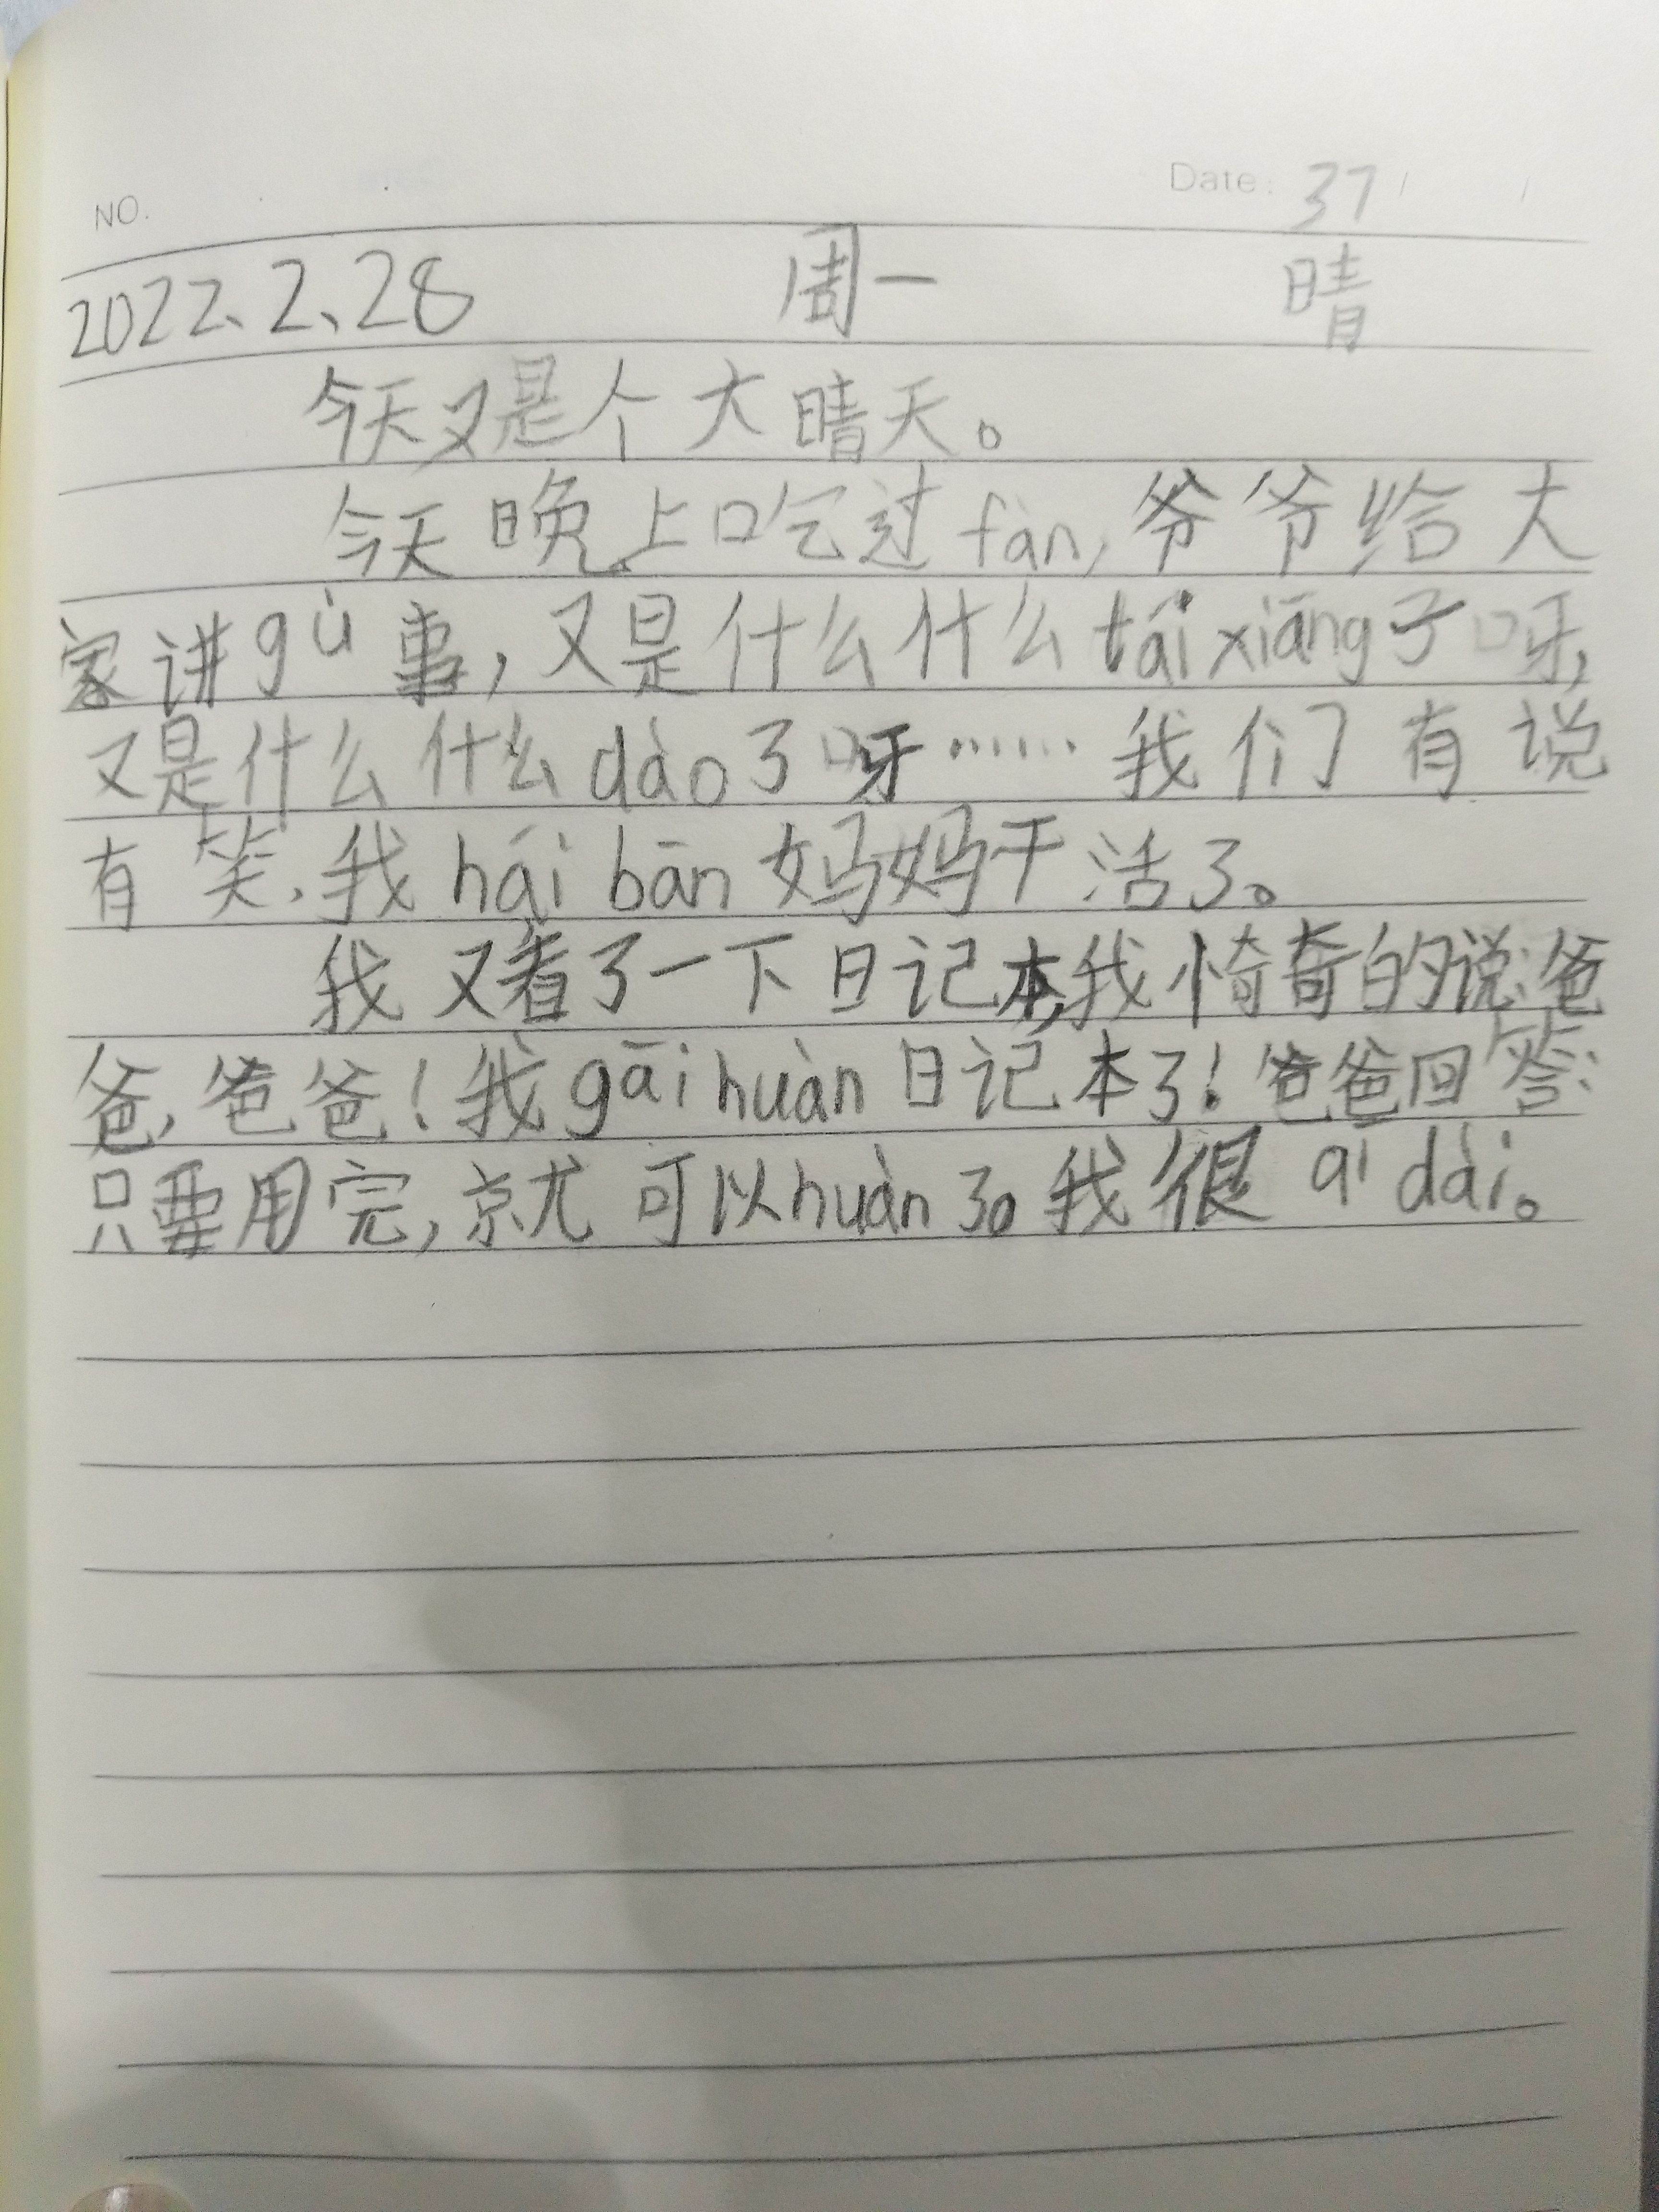 NO.
Date: 37
2022、2、28 周一 晴
今天又是个大晴天。
今天晚上吃过fàn,爷爷给大
家讲gù事,又是什么什么tái xiāng子呀,
又是什么什么dào了呀……我们有说
有笑,我hái bān妈妈干活了。
我又看了一下日记本,我惊奇的说:爸
爸,爸爸!我gāi huàn日记本了!爸爸回答:
只要用完,就可以huàn了。我很qī dài。